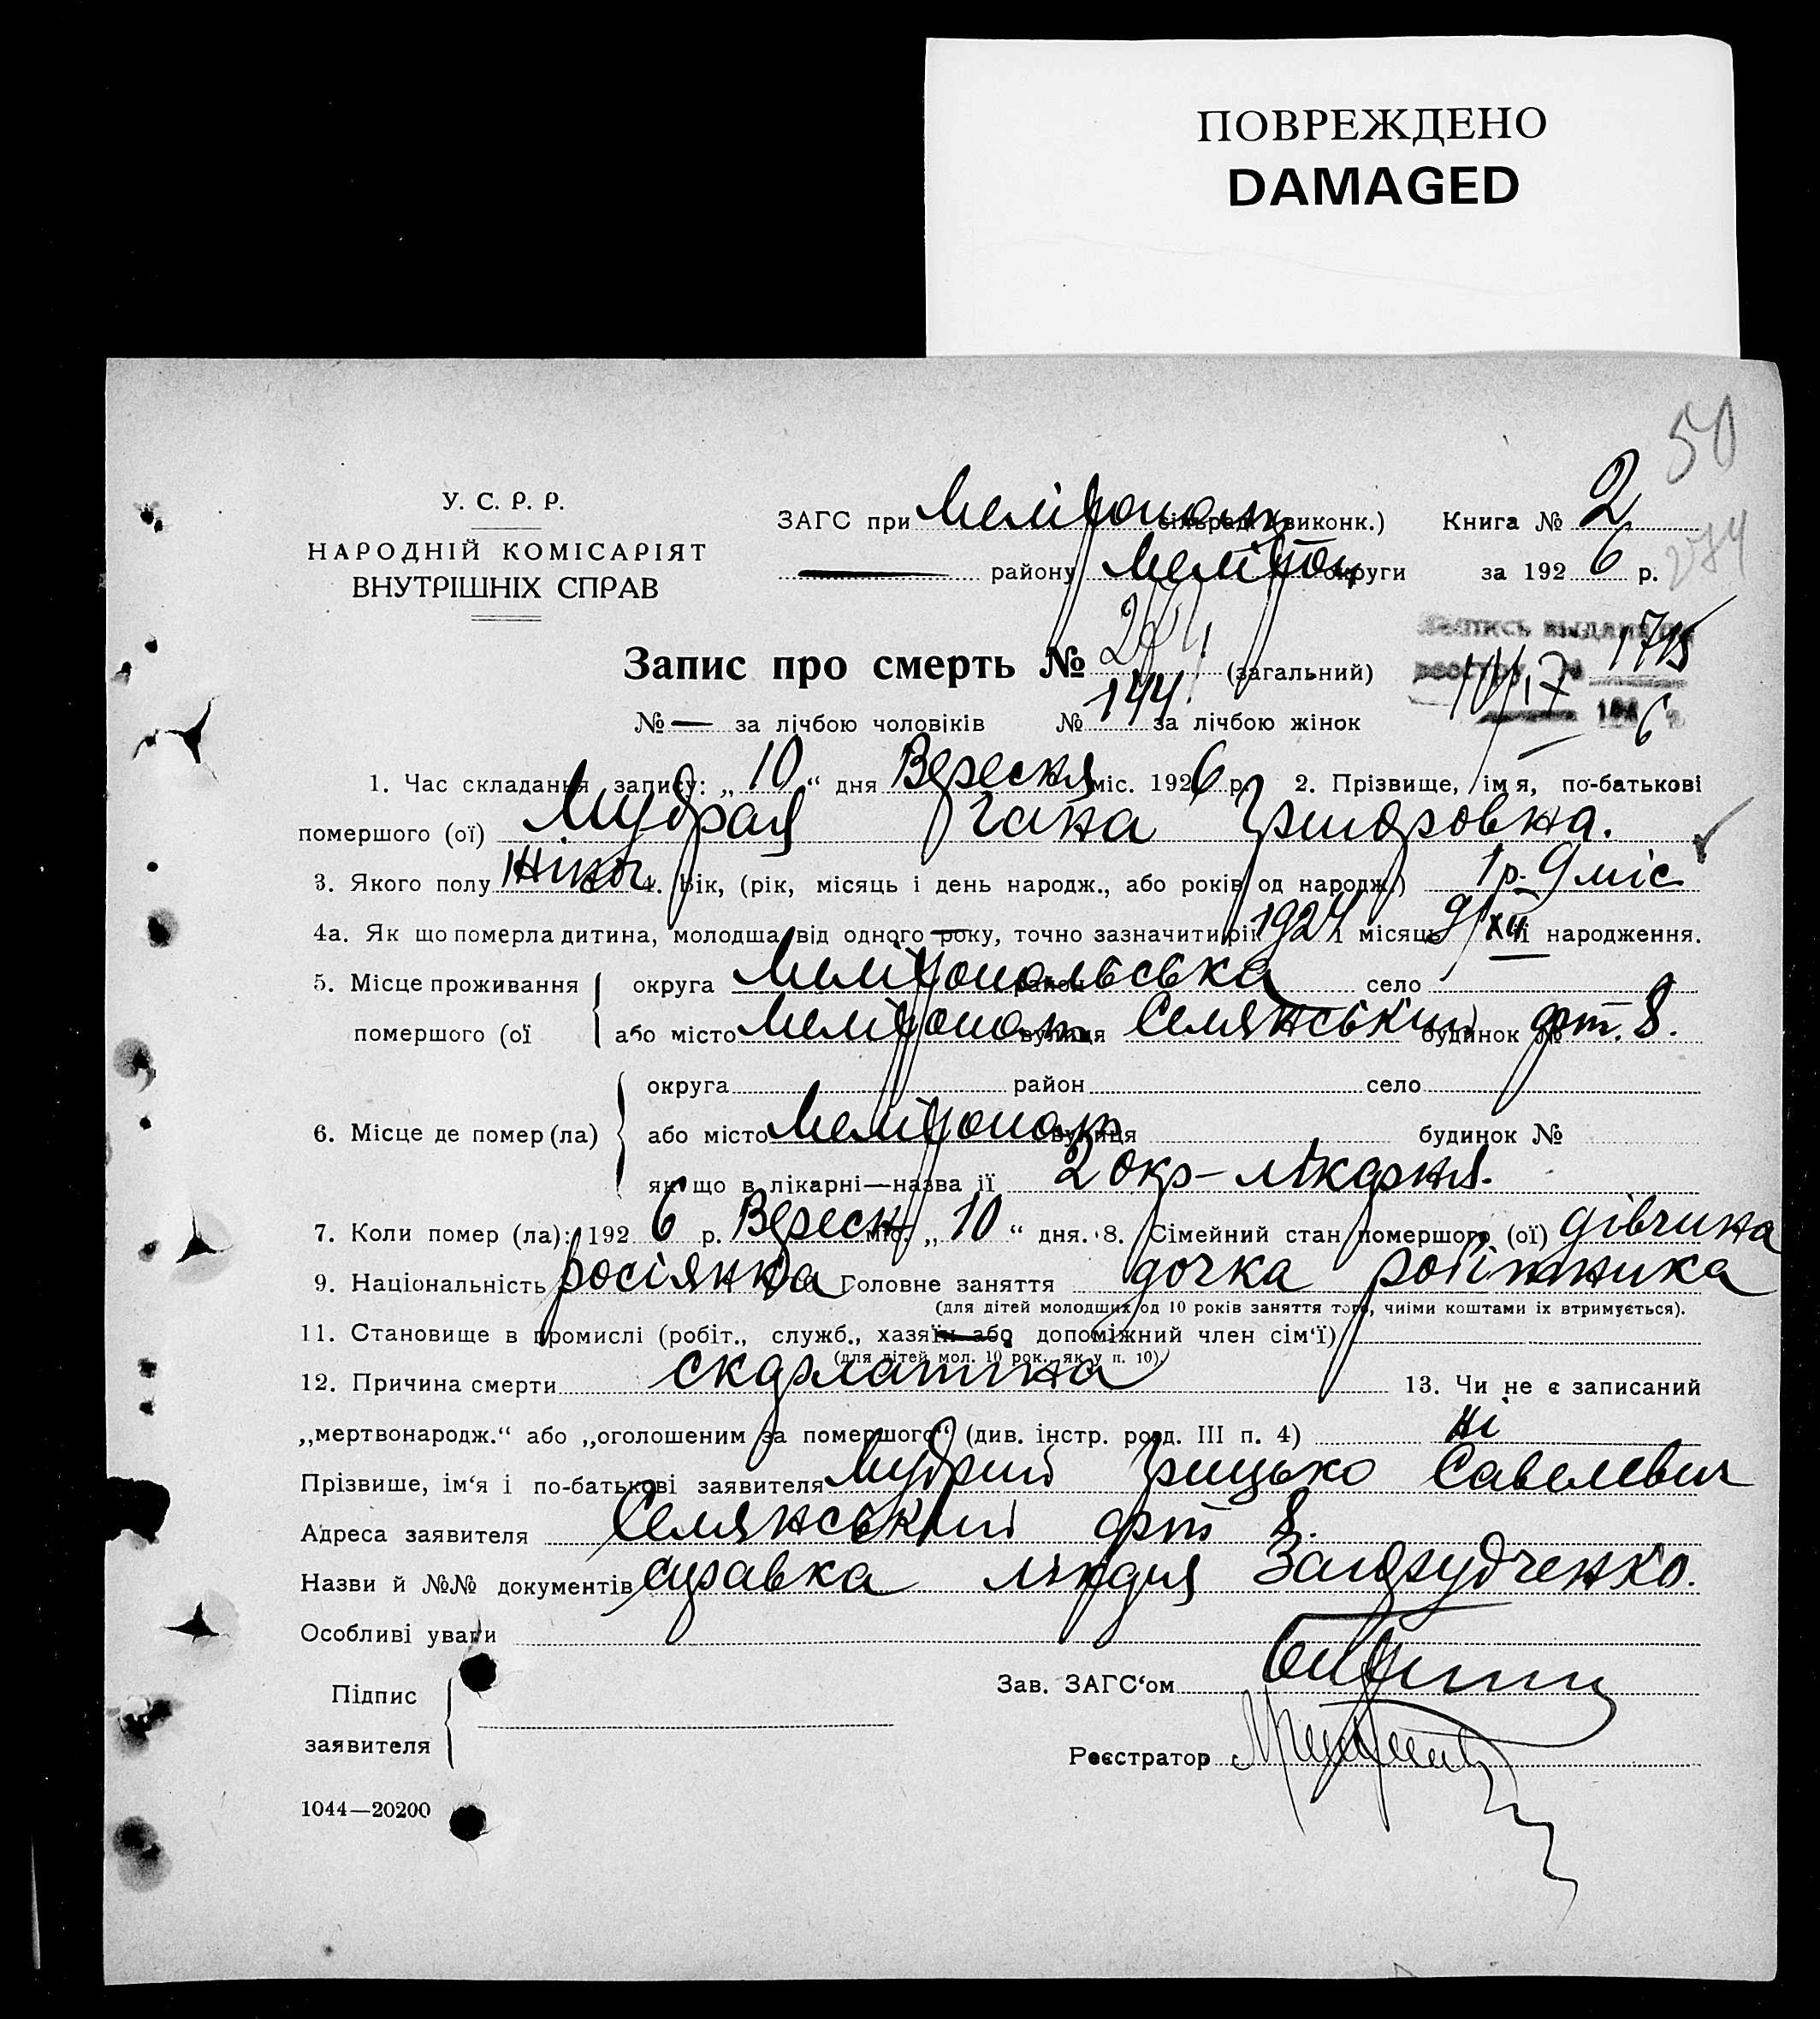 ПОВРЕЖДЕНО
DAMAGED
50
У. С. Р. Р.
НАРОДНІЙ КОМІСАРІЯТ
ВНУТРІШНІХ СПРАВ
ЗАГС при Мелітополь сільраді (виконк.) Книга № 2
району Меліток округи за 1926 р. 274
Запис про смерть № 274 (загальний)
запись выдана по реестру № 1715
№ — за лічбою чоловіків № 144 за лічбою жінок
1. Час складання запису: „10“ дня Вересня міс. 1926 р. 2. Прізвище, імя, по-батькові
помершого (ої) Мудрая Гана Григоровна.
3. Якого полу жіноч 4. Вік, (рік, місяць і день народж., або років од народж.) 1 р. 9 міс
4а. Як що померла дитина, молодша від одного року, точно зазначити рік 1924 і місяць 9/XII і народження.
5. Місце проживання округа Мелітопольська район село
помершого (ої або місто Мелітополь вулиця Селянський будинок № 8.
округа район село
6. Місце де помер (ла) або місто Мелітополь вулиця будинок №
як що в лікарні—назва ії 2 окр-лікарня.
7. Коли помер (ла): 1926 р. Вересн міс. „10“ дня. 8. Сімейний стан помершого (ої) дівчина
9. Національність росіянка Головне заняття дочка робітника
(для дітей молодших од 10 років заняття того, чиіми коштами іх втримується).
11. Становище в промислі (робіт., служб., хазяїн або допоміжний член сім‘ї)
(для дітей мол. 10 рок., як у п. 10).
12. Причина смерти скарлатина 13. Чи не є записаний
„мертвонародж.“ або „оголошеним за помершого“ (див. інстр. розд. III п. 4) ні
Прізвише, ім‘я і по-батькові заявителя Мудрий Грицько Савелевич
Адреса заявителя Селянський 8.
Назви й №№ документів справка лікаря
Особливі уваги
Підпис
заявителя
Зав. ЗАГС‘ом
Реєстратор
1044—20200